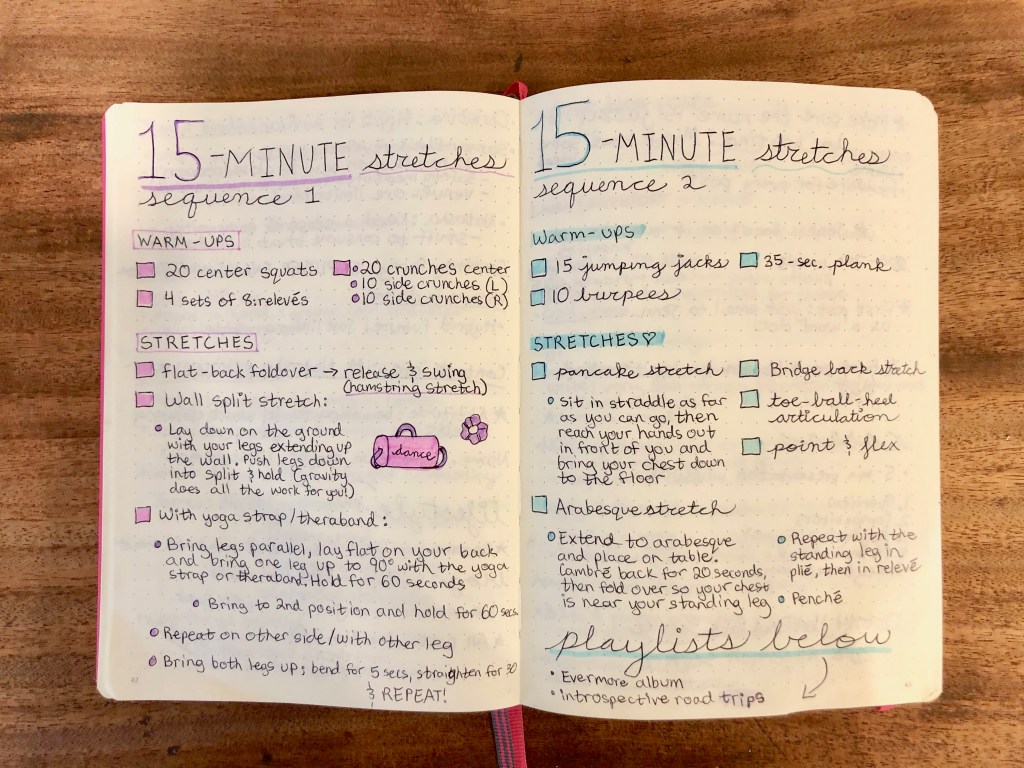 15-MINUTE stretches
sequence 1
WARM-UPS
20 center squats
4 sets of 8:relevés
20 crunches center
10 side crunches(L)
10 side crunches(R)
STRETCHES
flat-back foldover → release & swing
(hamstring stretch)
Wall split stretch:
Lay down on the ground
with your legs extending up
the wall. Push legs down
into split & hold (gravity
does all the work for you!)
dance
With yoga strap/theraband:
Bring legs parallel, lay flat on your back
and bring one leg up to 90° with the yoga
strap or theraband. Hold for 60 seconds
Bring to 2nd position and hold for 60 secs
Repeat on other side/with other leg
Bring both legs up; bend for 5 secs, straighten for 30
& REPEAT!
15-MINUTE stretches
sequence 2
Warm-ups
15 jumping jacks
10 burpees
35-sec. plank
STRETCHES♡
pancake stretch
sit in straddle as far
as you can go, then
reach your hands out
in front of you and
bring your chest down
to the floor
Bridge back stretch
toe-ball-heel
articulation
point & flex
Arabesque stretch
Extend to arabesque
and place on table.
Cambré back for 20 seconds,
then fold over so your chest
is near your standing leg
Repeat with the
standing leg in
plié, then in relevé
Penché
playlists below
Evermore album
introspective road trips